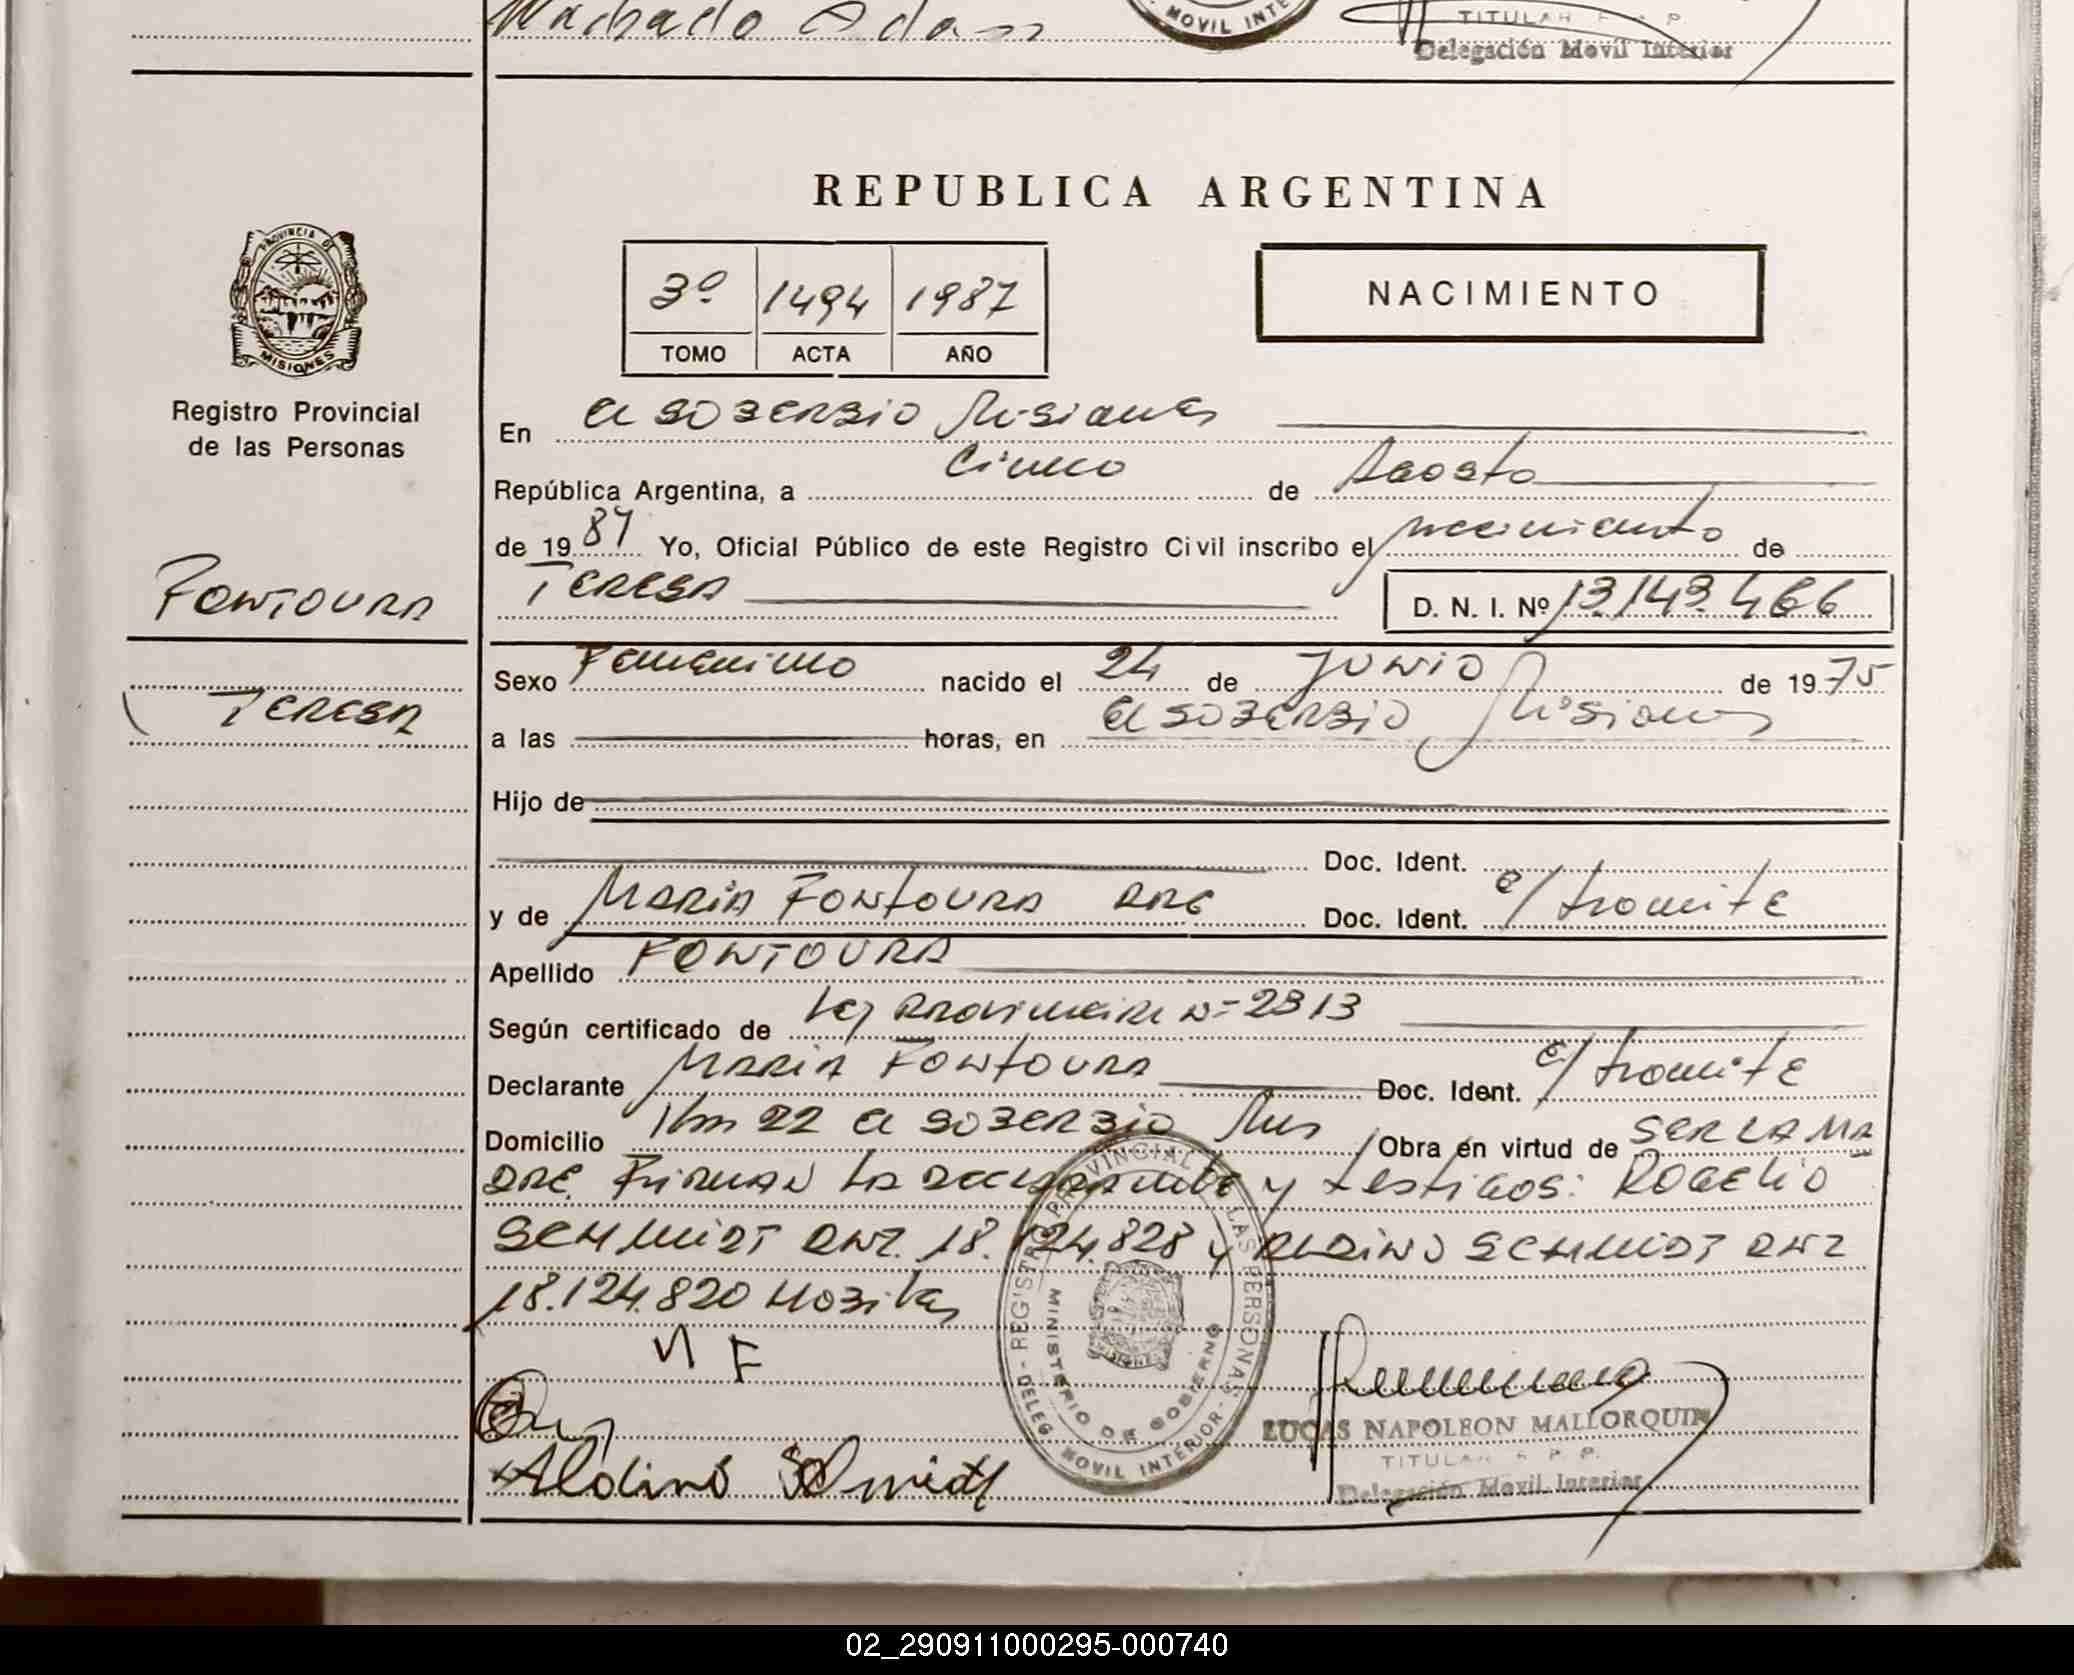 Machado Adan
MOVIL INTE
TITULAR
Delegación Movil Interior
REPUBLICA ARGENTINA
PROVINCIA DE
MISIONES
3º 1494 1987
TOMO ACTA AÑO
NACIMIENTO
Registro Provincial
de las Personas
En El Soberbio Misiones
República Argentina, a Cinco de Agosto
de 1987 Yo, Oficial Público de este Registro Civil inscribo el nacimiento de
Fontoura
Teresa D. N. I. Nº 13.143.466
Sexo Femenino nacido el 24 de Junio de 1975
Teresa
a las horas, en El Soberbio Misiones
Hijo de
Doc. Ident.
y de Maria Fontoura ARG Doc. Ident. e/ tramite
Apellido FONTOURA
Según certificado de Ley Provincial Nº 2313
Declarante Maria Fontoura Doc. Ident. e/ tramite
Domicilio Km 22 El Soberbio Mnes Obra en virtud de SER LA MA
DRE. Firman la declarante y testigos: Rogelio
Schmidt DNI. 18.124.828 y Aldino Schmidt DNI
18.124.820 Habiles
M F
REGISTRO PROVINCIAL DE LAS PERSONAS - DELEG MOVIL INTERIOR -
MINISTERIO DE GOBIERNO
LUCAS NAPOLEON MALLORQUIN
Aldino Schmidt
TITULAR R. P. P.
Delegación Movil Interior
02_290911000295-000740